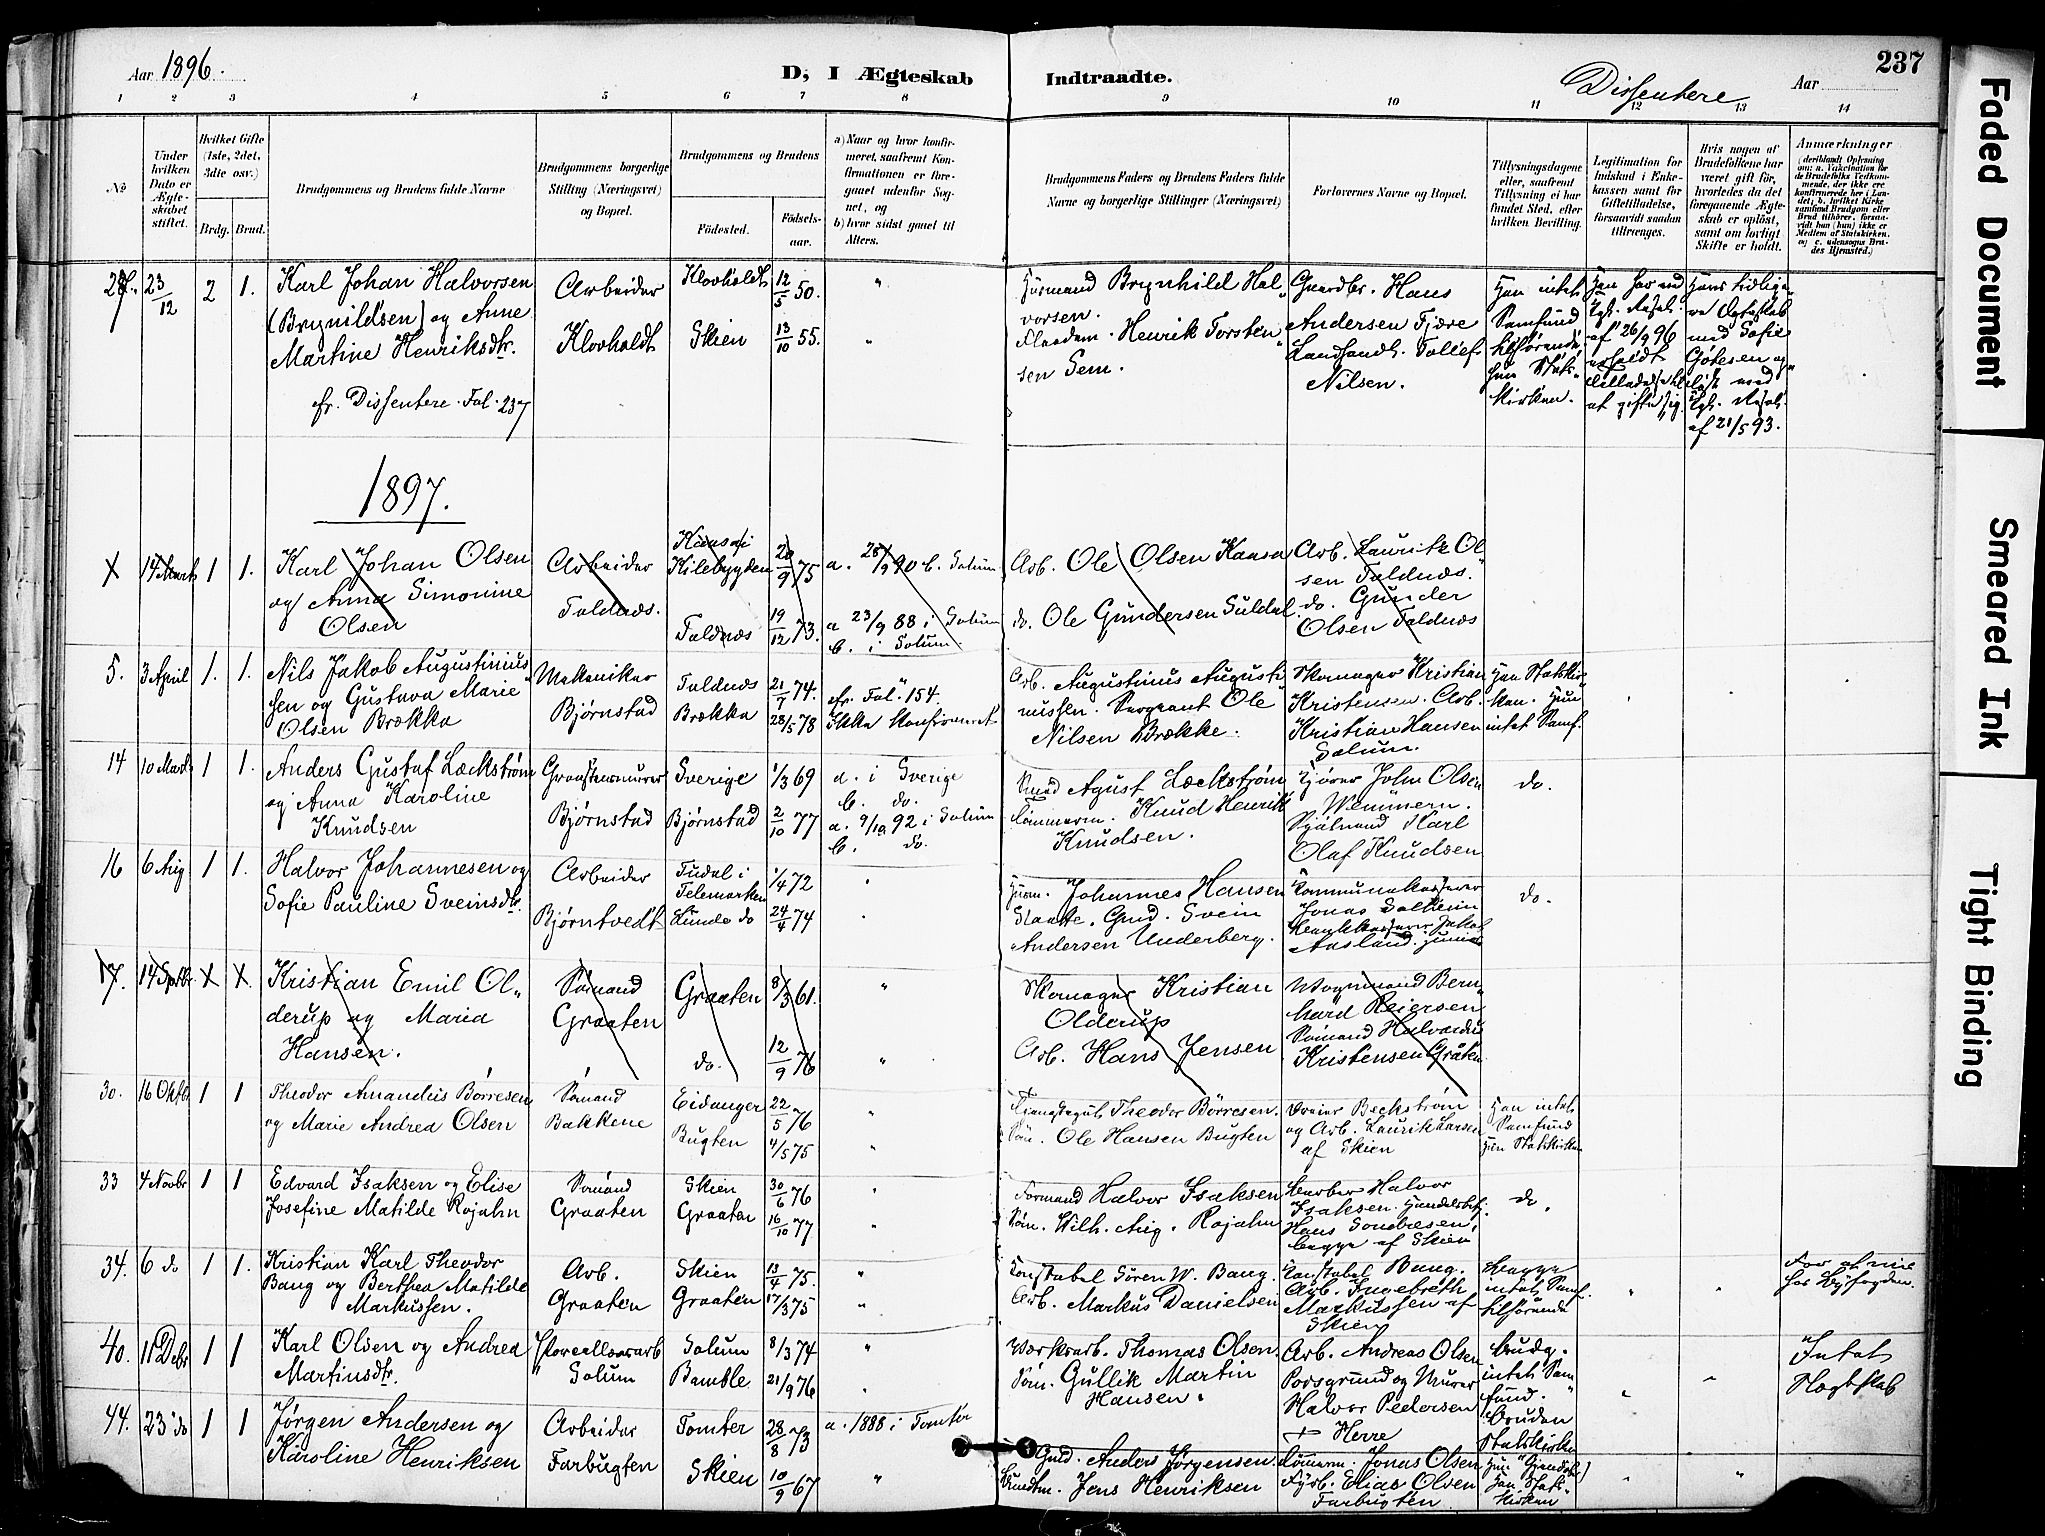 Aar 1896.
D, I Ægteskab Indtraadte.
Dissentere
Aar
237
1 2 3 4 5 6 7 8 9 10 11 12 13 14
No
Under hvilken Dato er Ægteskabet stiftet.
Hvilket Gifte (1ste, 2det, 3die osv.)
Brdg. Brud.
Brudgommens og Brudens fulde Navne
Brudgommens borgerlige Stilling (Næringsvei) og Bopæl.
Brudgommens og Brudens
Födested.
Födselsaar.
a) Naar og hvor konfirmeret, saafremt Konfirmationen er foregaaet udenfor Sognet, og
b) hvor sidst gaaet til Alters.
Brudgommens Faders og Brudens Faders fulde Navne og borgerlige Stillinger (Næringsvei)
Forlovernes Navne og Bopæl.
Tillysningsdagene eller, saafremt Tillysning ei har fundet Sted, efter hvilken Bevilling.
Legitimation for Indskud i Enkekassen samt for Giftetilladelse, forsaavidt saadan tiltrænges.
Hvis nogen af Brudefolkene har været gift før, hvorledes da det foregaaende Ægteskab er opløst, samt om lovligt Skifte er holdt.
Anmærkninger
(deriblandt Oplysning om: a. Vakcination for de Brudefolks Vedkommende, der ikke ere konfirmerede her i Landet; b. hvilket Kirkesamfund Brudgom eller Brud tilhører, forsaavidt han (hun) ikke er Medlem af Statskirken, og c. udensogns Brudes Hjemsted.)
23/12 2 1.
Karl Johan Halvorsen
(Brynildsen) og Anne
Martine Henriksdtr.
cfr. Dissentere Fol. 237
Arbeider
Klovholdt
Klovholdt 12/5 50.
Skien 13/10 55.
Husmand Brynhild Halvorsen.
Henrik Torstensen Sem.
Gaardbr. Hans
Andersen Fjære
Landhandl. Tollef
Nilsen.
Han intet
Samfund
tilhørende
hun Statskirken.
Han har ved
Kgl. Resol.
af 26/9 96
erholdt
Tilladelse til
at gifte sig.
Hans tidligere Ægteskab
med Sofie
løst ved
Kgl. Resol.
af 21/5 93.
1897.
14 Marts 1 1.
Karl Johan Olsen
og Anna Simonine
Olsen
Arbeider
Foldnæs.
Kaasa i
Kilebygden 20/9 75
Foldnæs 19/12 73.
a. 28/9 90 b. Solum
a 23/9 88 i Solum
b. i Solum
Arb. Ole Olsen Kaasa
do. Ole Gundersen Suldal
Arb. Lauritz Olsen Foldnæs.
do. Gunder
Olsen Foldnæs
5. 3 April 1. 1.
Nils Jakob Augustiniussen og Gustava Marie
Olsen Brække
Mekaniker
Bjørnstad
Foldnæs 21/7 74.
Brække 28/5 78
cfr. Fol. 154.
Ikke konfirmeret
Arb. Augustinus Augustinussen. Sergeant Ole
Nilsen Brække.
Skomager Kristian
Kristensen. Arb.
Kristian Hansen
Solum.
Han Statskirken. Hun
intet Samf.
14 10 Marts 1 1.
Anders Gustaf Læckstrøm
og Anna Karoline
Knudsen
Graastensmurer
Bjørnstad
Sverige 1/3 69
Bjørnstad 2/10 77
a. i Sverige
b. do.
a. 9/10 92 i Solum
b. do.
Smed Agust Læckstrøm
Tømmerm. Knud Henrik
Knudsen.
Kjører John Olsen
Wemmern.
Sjømand Karl
Olaf Knudsen
do.
16 6 Aug 1 1.
Halvor Johannesen og
Sofie Pauline Sveinsdtr.
Arbeider
Bjørntvedt
Tudal i
Telemarken 1/4 72
Lunde do 24/4 74
Husm. Johannes Hansen
Slaatte. Gmd. Svein
Andersen Underberg.
Kommunekasserer
Jonas Solheim
Jakob
Aasland junior
do.
17. 14 Septbr.
Kristian Emil Olderup og Maria
Hansen.
Sømand
Graaten
Graaten 8/3 61.
do. 12/9 76
Skomager Kristian
Olderup
Arb. Hans Jensen
Vognmand Bernhard Reiersen
Sømand Halvardus
Kristensen Gråten
30. 16 Oktb. 1 1
Theodor Amandus Børresen
og Marie Andrea Olsen
Sømand
Bakkene
Eidanger 22/5 76
Bugten 4/5 75
Theodor Børresen.
Søm. Ole Hansen Bugten
Dreier Beckstrøm
og Arb. Laurits Larsen
af Skien
Han intet
Samfund
Hun Statskirken
33 4 Novbr 1 1
Edvard Isaksen og Elise
Josefine Matilde Rojahn
Sømand
Graaten
Skien 30/6 76
Graaten 16/10 77
Formand Halvor Isaksen
Søm. Wilh. Aug. Rojahn
Halvor
Isaksen. Handelsbetj.
Hans
begge af Skien
do.
34. 6 do 1 1.
Kristian Karl Theodor
Bang og Berthea Matilde
Markussen.
Arb.
Graaten
Skien 13/4 75.
Graaten 17/3 75
Konstabel Søren W. Bang.
Arb. Markus Danielsen
Konstabel Bang.
Arb. Ingebreth
Markussen af
Skien
Begge
intet Samf.
tilhørende
hos Byfogden.
40. 11 Debr 1 1
Karl Olsen og Andrea
Martinsdtr.
Porcellænsarb
Solum
Solum 8/3 74
Bamble 21/9 76
Værksarb. Thomas Olsen.
Søm. Gullik Martin
Hansen.
Arb. Andreas Olsen
Porsgrund og Murer
Halvor Pedersen
Herre
Brudg.
intet Samfund.
Bruden
Statskirken
Intet
Slægtskab
44. 23 do 1 1
Jørgen Andersen og
Karoline Henriksen
Arbeider
Farbugten
Tomter 28/8 73
Skien 10/9 67
a. 1888 i Tomter
Gmd. Anders Jørgensen.
Jens Henriksen
Tømmerm. Jonas Olsen
Fyrb. Elias Olsen
Farbugten
Han Statskirken
Faded Document
Smeared Ink
Tight Binding